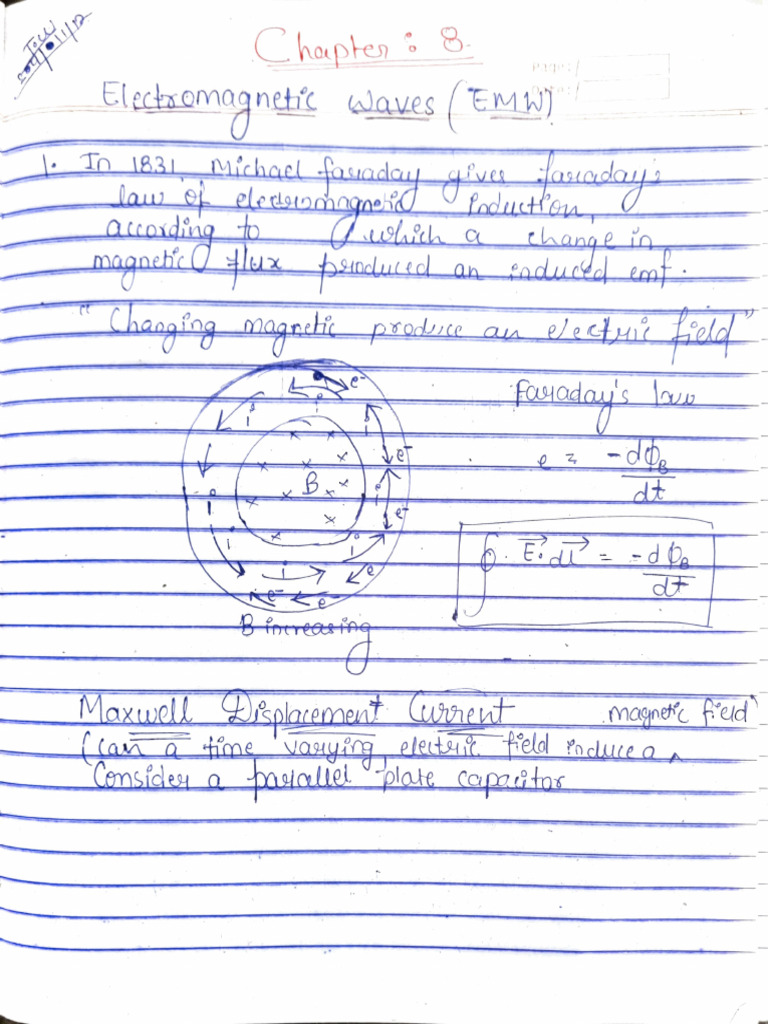 Chapter : 8
Electromagnetic waves (EMW)
1. In 1831, Michael faraday gives faraday's
law of electromagnetic induction,
according to which a change in
magnetic flux produced an induced emf.
"Changing magnetic produce an electric field"
faraday's law
e = -dϕ_B/dt
∮ E⃗ . dl⃗ = -dϕ_B/dt
B
e⁻ e⁻ e⁻ e e⁻ e⁻
i i i i i i i
B increasing
Maxwell Displacement Current
(can a time varying electric field induce a ^ magnetic field"
Consider a parallel plate capacitor